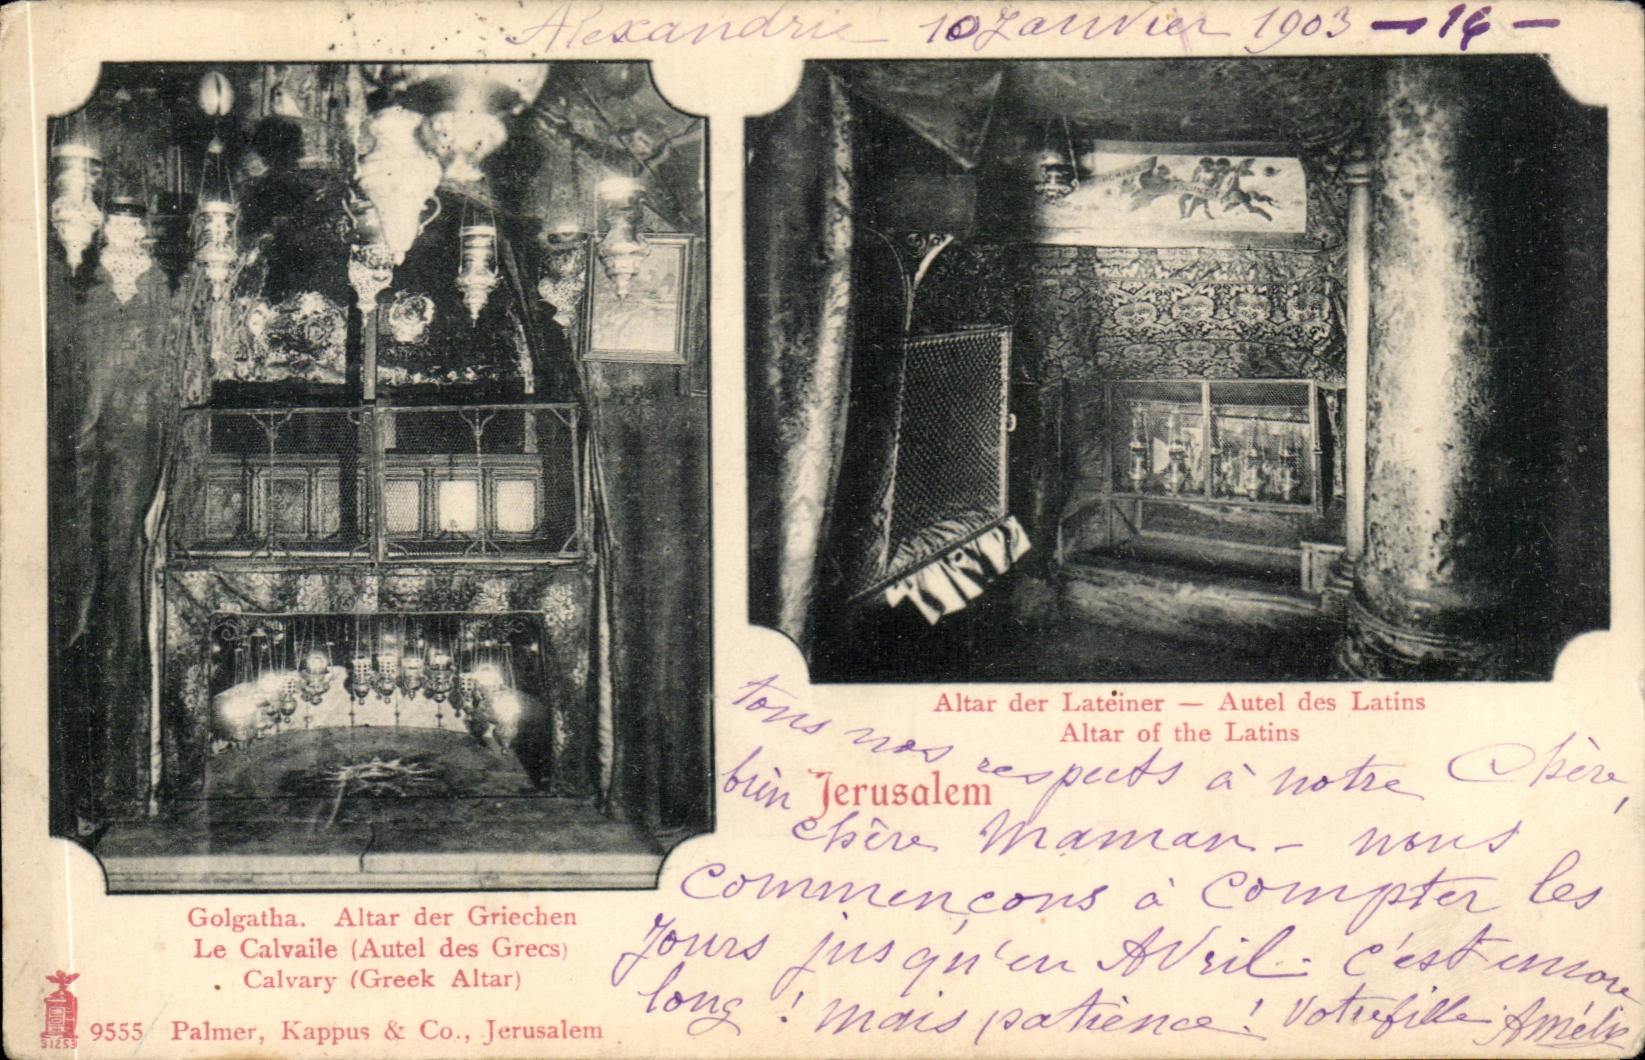 Alexandrie 10 Janvier 1903 — 14 —
Altar der Lateiner — Autel des Latins
Altar of the Latins
Jerusalem
tous nos respects à notre Chère,
bien chère Maman - nous
commençons à compter les
Jours jusqu'en Avril. C'est encore
long ! mais patience ! Votre fille Amélie
Golgatha. Altar der Griechen
Le Calvaile (Autel des Grecs)
Calvary (Greek Altar)
51253
9555 Palmer, Kappus & Co., Jerusalem